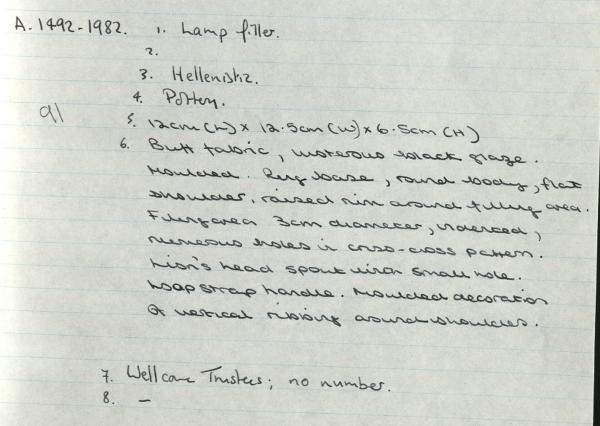 A. 1492-1982. 1. Lamp filler.
2.
3. Hellenistic.
4. Pottery.
91
5. 12cm (L) x 12.5cm (W) x 6.5cm (H)
6. Buff fabric, lustrous black glaze.
Moulded. Ring base, round body, flat
shoulder, raised rim around filling area.
Filling area 3cm diameter, indented,
numerous holes in criss-cross pattern.
Lion's head spout with small hole.
Loop strap handle. Moulded decoration
of vertical ribbing around shoulder.
7. Wellcome Trustees; no number.
8. —